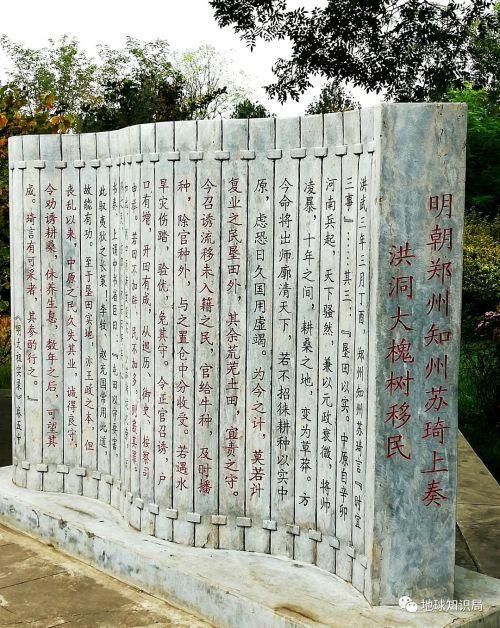 明朝郑州知州苏琦上奏
洪洞大槐树移民
洪武三年三月丁酉，郑州知州苏琦言『时宜
三事』：……其三，『垦田以实。中原自辛卯
河南兵起，天下骚然，兼以元政衰微，将帅
凌暴，十年之间，耕桑之地，变为草莽。方
今命将出师廓清天下，若不招徕耕种以实中
原，虑恐日久国用虚竭。为今之计，莫若计
复业之民垦田外，其余荒芜土田，宜责之守。
今召诱流移未入籍之民，官给牛种，及时播
种，除官种外，与之置仓中分收受。若遇水
旱灾伤踏，验优，免其守。令正官召诱，户
口有增，开田有成，从巡历，御史，按察司
申举。若田不加辟，民不加多，则核其罪。
书奏，上谓中书省臣曰：『屯田以守要害，
此驭夷狄之长策。李牧，赵充国常用此道，
故能有功。至于垦田实地，亦王政之本，但
丧乱以来，中原之民久失其业，诚得良守，
令劝诱耕桑，休养生息，数年之后，可望其
成。琦言有可采者，其参酌行之。』
《明太祖实录》卷五十
地球知识局